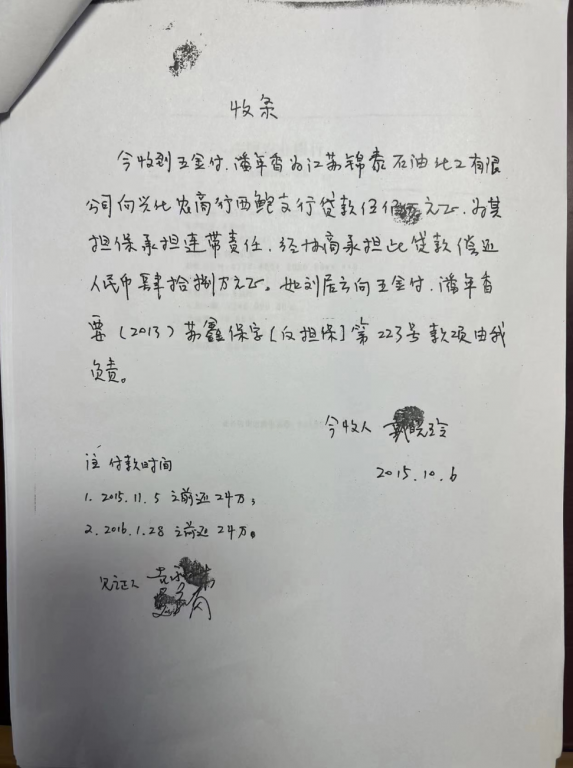 收条
今收到王金付、潘年香为江苏锦泰石油化工有限
公司向兴化农商行西鲍支行贷款伍佰 元正、为其
担保承担连带责任、经协商承担此贷款偿还
人民币肆拾捌万元正。如刘居云向王金付、潘年香
要(2013)苏鑫保字[反担保]第223号款项由我
负责。
今收人 晓玲
2015.10.6
注 付款时间
1. 2015.11.5 之前还24万;
2. 2016.1.28 之前还24万。
见证人